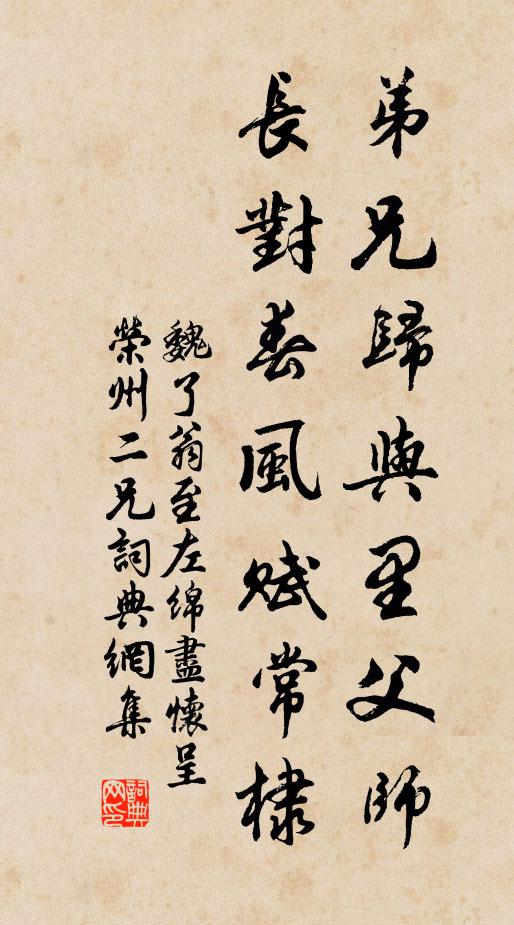 弟兄歸與里父師
長對春風賦常棣
魏了翁至左綿盡懷呈
榮州二兄詞典網集
詞典网印